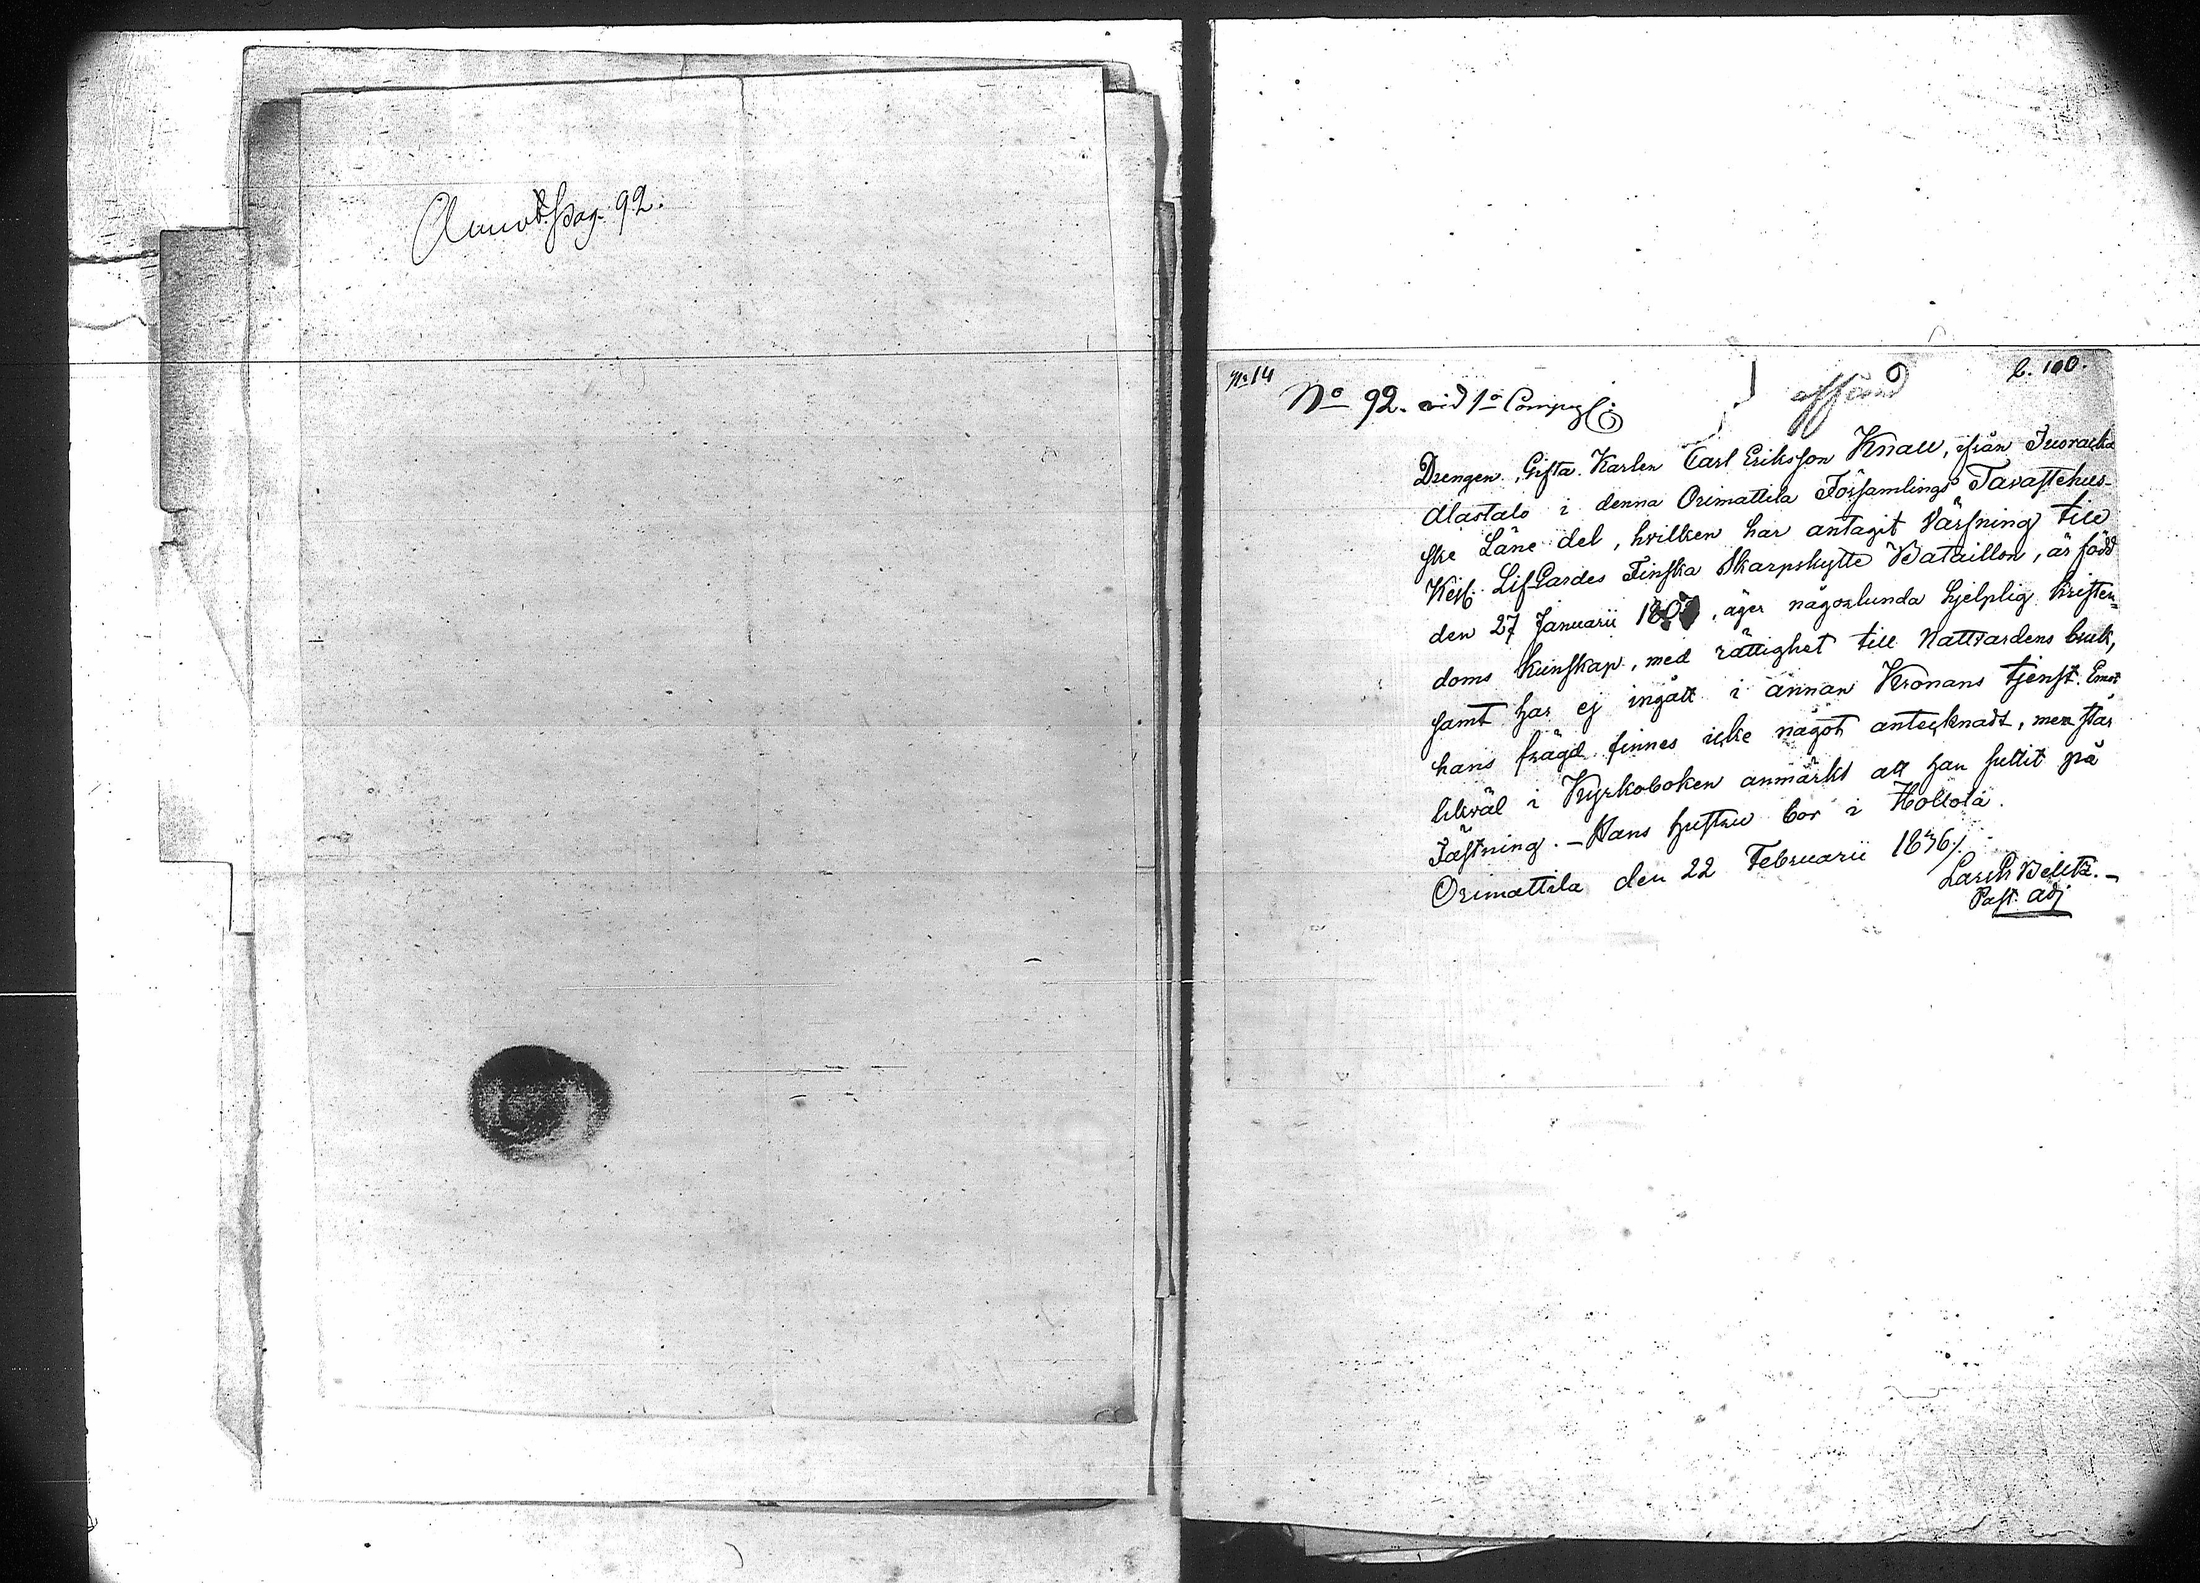 pag. 92.
No 14
No 92. vid 1a Comp.
b. 100.
Drengen, Gifta Karlen Carl Eriksson Knall, ifrån
Alastalo i denna Orimattila Församlings Tavastehus-
ske Läns del, hvilken har antagit Värfning till
Kejs. LifGardes Finska Skarpskytte Bataillon, är född
den 27 Januarii 180, äger någorlunda hjelplig kristen-
doms kunskap, med rättighet till Nattvardens bruk,
samt har ej ingått i annan Kronans tjenst. Emot
hans frägd finnes icke något antecknadt, men står
likväl i Kyrkoboken anmärkt att han suttit på
Fästning. – Hans hustru bor i Hollola.
Orimattila den 22 Februarii 1836.
Past. adj